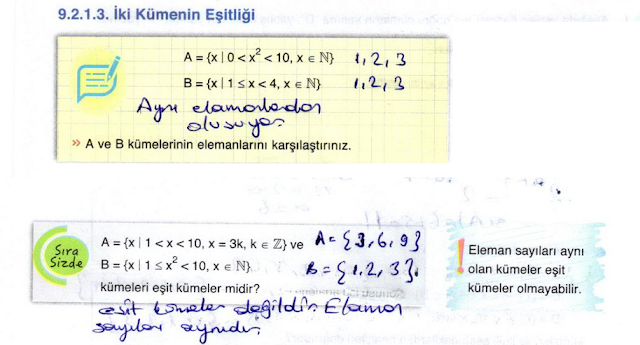 9.2.1.3. İki Kümenin Eşitliği
A = {x | 0 < x² < 10, x ∈ ℕ} 1, 2, 3
B = {x | 1 ≤ x < 4, x ∈ ℕ} 1, 2, 3
Aynı elamanlardan
oluşuyor
» A ve B kümelerinin elemanlarını karşılaştırınız.
Sıra
Sizde
A = {x | 1 < x < 10, x = 3k, k ∈ ℤ} ve A = {3, 6, 9}
B = {x | 1 ≤ x² < 10, x ∈ ℕ} B = {1, 2, 3}.
kümeleri eşit kümeler midir?
eşit kümeler değildir. Elaman
sayıları aynıdır.
! Eleman sayıları aynı
olan kümeler eşit
kümeler olmayabilir.